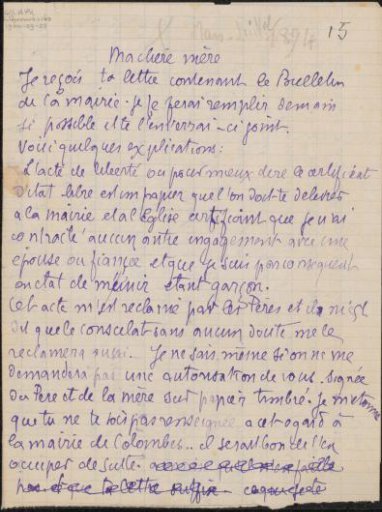 15
Ma chère mère
Je reçois ta lettre contenant le Bulletin
de la mairie. je le ferai remplir demain
si possible et te l'enverrai ci joint.
Voici quelques explications :
L'acte de liberté ou pour mieux dire le certificat
d'état libre est un papier que l'on doit te delivrer
a la mairie et a l'Eglise certifiant que je n'ai
contracté aucun autre engagement avec une
epouse ou fiancée et que je suis par consequent
en etat de m'unir etant garçon.
Cet acte m'est reclamé par les Pères et ils m'ont
dit que le consulat sans aucun doute me le
reclamera aussi. Je ne sais meme si on ne me
demandera pas une autorisation de vous signée
du Père et de la mère sur papier timbré. Je m'etonne
que tu ne te sois pas renseignée a cet egard à
la mairie de Colombes.. il serait bon de l'en
occuper de suite.